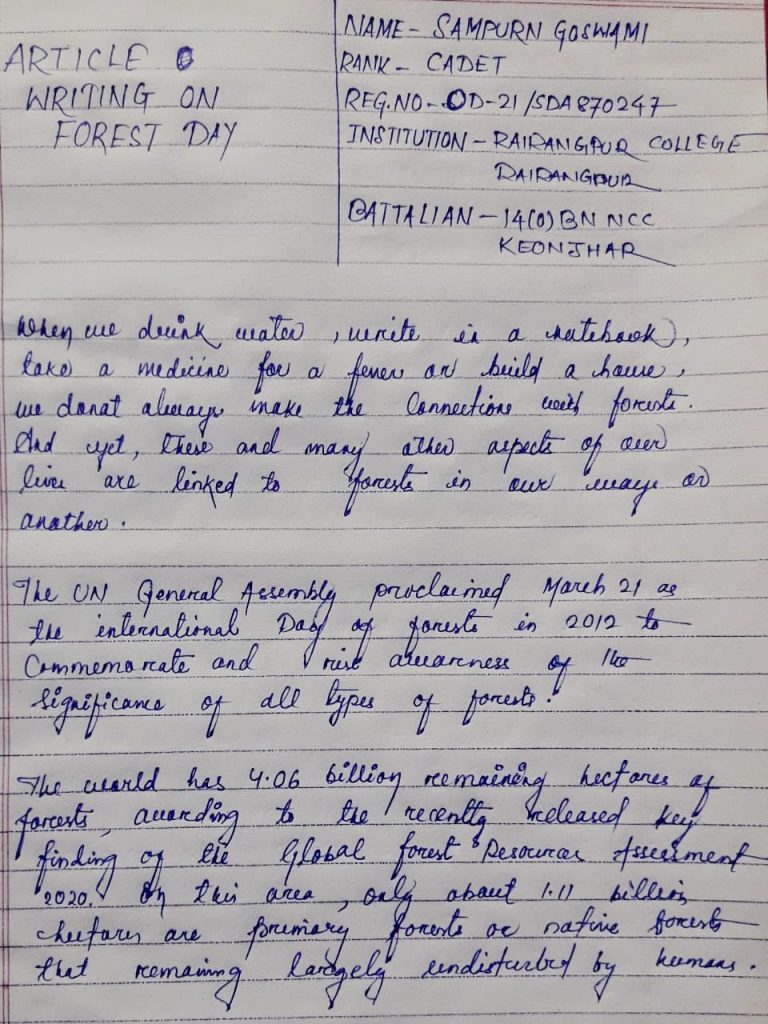 ARTICLE
WRITING ON
FOREST DAY
NAME - SAMPURN GOSWAMI
RANK - CADET
REG.NO - OD-21/SDA870247
INSTITUTION - RAIRANGPUR COLLEGE
RAIRANGPUR
BATTALIAN - 14(O) BN NCC
KEONJHAR
When we drink water, write in a notebook,
take a medicine for a fever or build a house,
we donot always make the Connections with forests.
And yet, these and many other aspects of our
lives are linked to forests in our ways or
another.
The UN General Assembly proclaimed March 21 as
the international Day of forests in 2012 to
Commemorate and rise awareness of the
significance of all types of forests.
The world has 4.06 billion remaining hectares of
forests, according to the recently released key
finding of the Global forest Resources Assessment
2020. On this area, only about 1.11 billion
hectares are primary forests or native forests
that remaining largely undisturbed by humans.